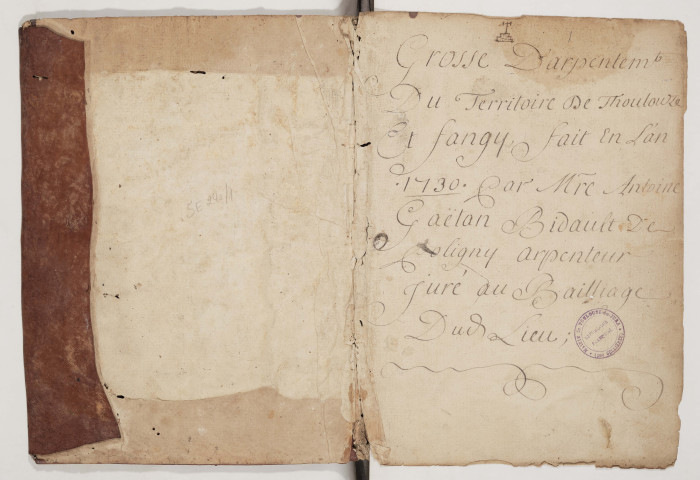 Grosse D'arpentemt
Du Territoire De Thoulouze
Et fangy, fait En L'an
.1730. par Mre Antoine
Gaëtan Bidault De
poligny arpenteur
Juré au Bailliage
Dud Lieu;